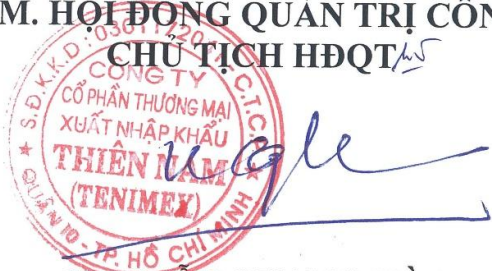 M. HỘI ĐỒNG QUẢN TRỊ CÔN
CHỦ TỊCH HĐQT
CÔNG TY
CỔ PHẦN THƯƠNG MẠI
XUẤT NHẬP KHẨU
THIÊN NAM
(TENIMEX)
QUẬN 10 - TP. HỒ CHÍ MINH